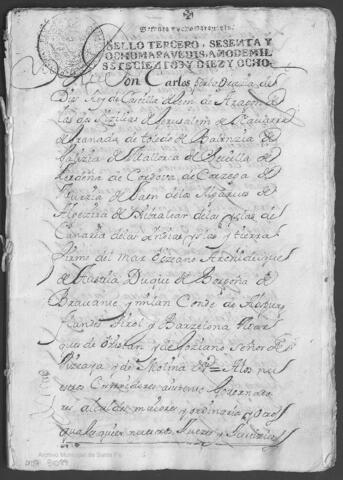 SELLO TERCERO, SESENTA Y
OCHO MARAVEDIS, AÑO DE MIL
SETECIENTOS Y DIEZ Y OCHO.
Don Carlos de
Dios Rey de Castilla de Leon de Aragon de
las dos Sizilias de Jerusalem de Navarra
de Granada de toledo de Balenzia de
Galizia de Mallorca de Sevilla de
Zerdeña de Cordova de Corzega de
Murzia de Jaen de los Algarves de
Algezira de Gibraltar de las yslas de
Canaria de las yndias yslas y tierra
firme del mar Ozeano Archiduque
de Austria Duque de Borgoña de
Bravante y milan Conde de Abspurg
flandes tirol y Barzelona
de y de Señor de
Vizcaya y de Molina Alos nu
estros Correxidores asistente Governado
res alcaldes mayores y ordinarios y otros
qualesquier nuestros Juezes y Justizias
Archivo Municipal de Santa Fe